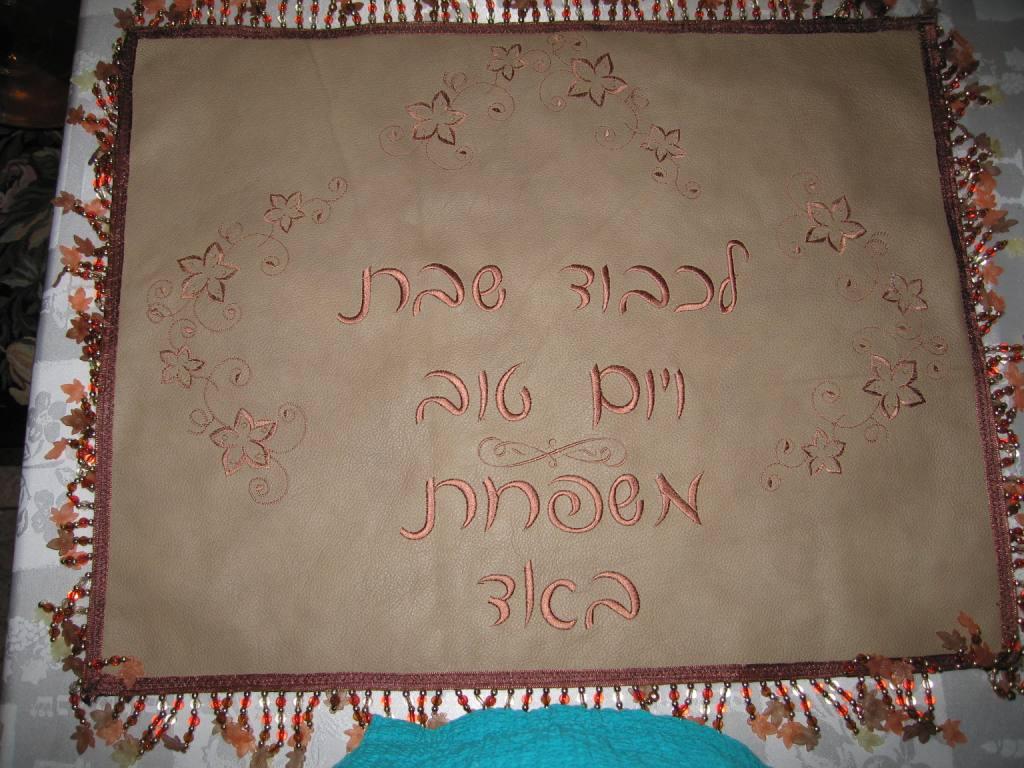 לכבוד שבת
ויום טוב
משפחת
באוד